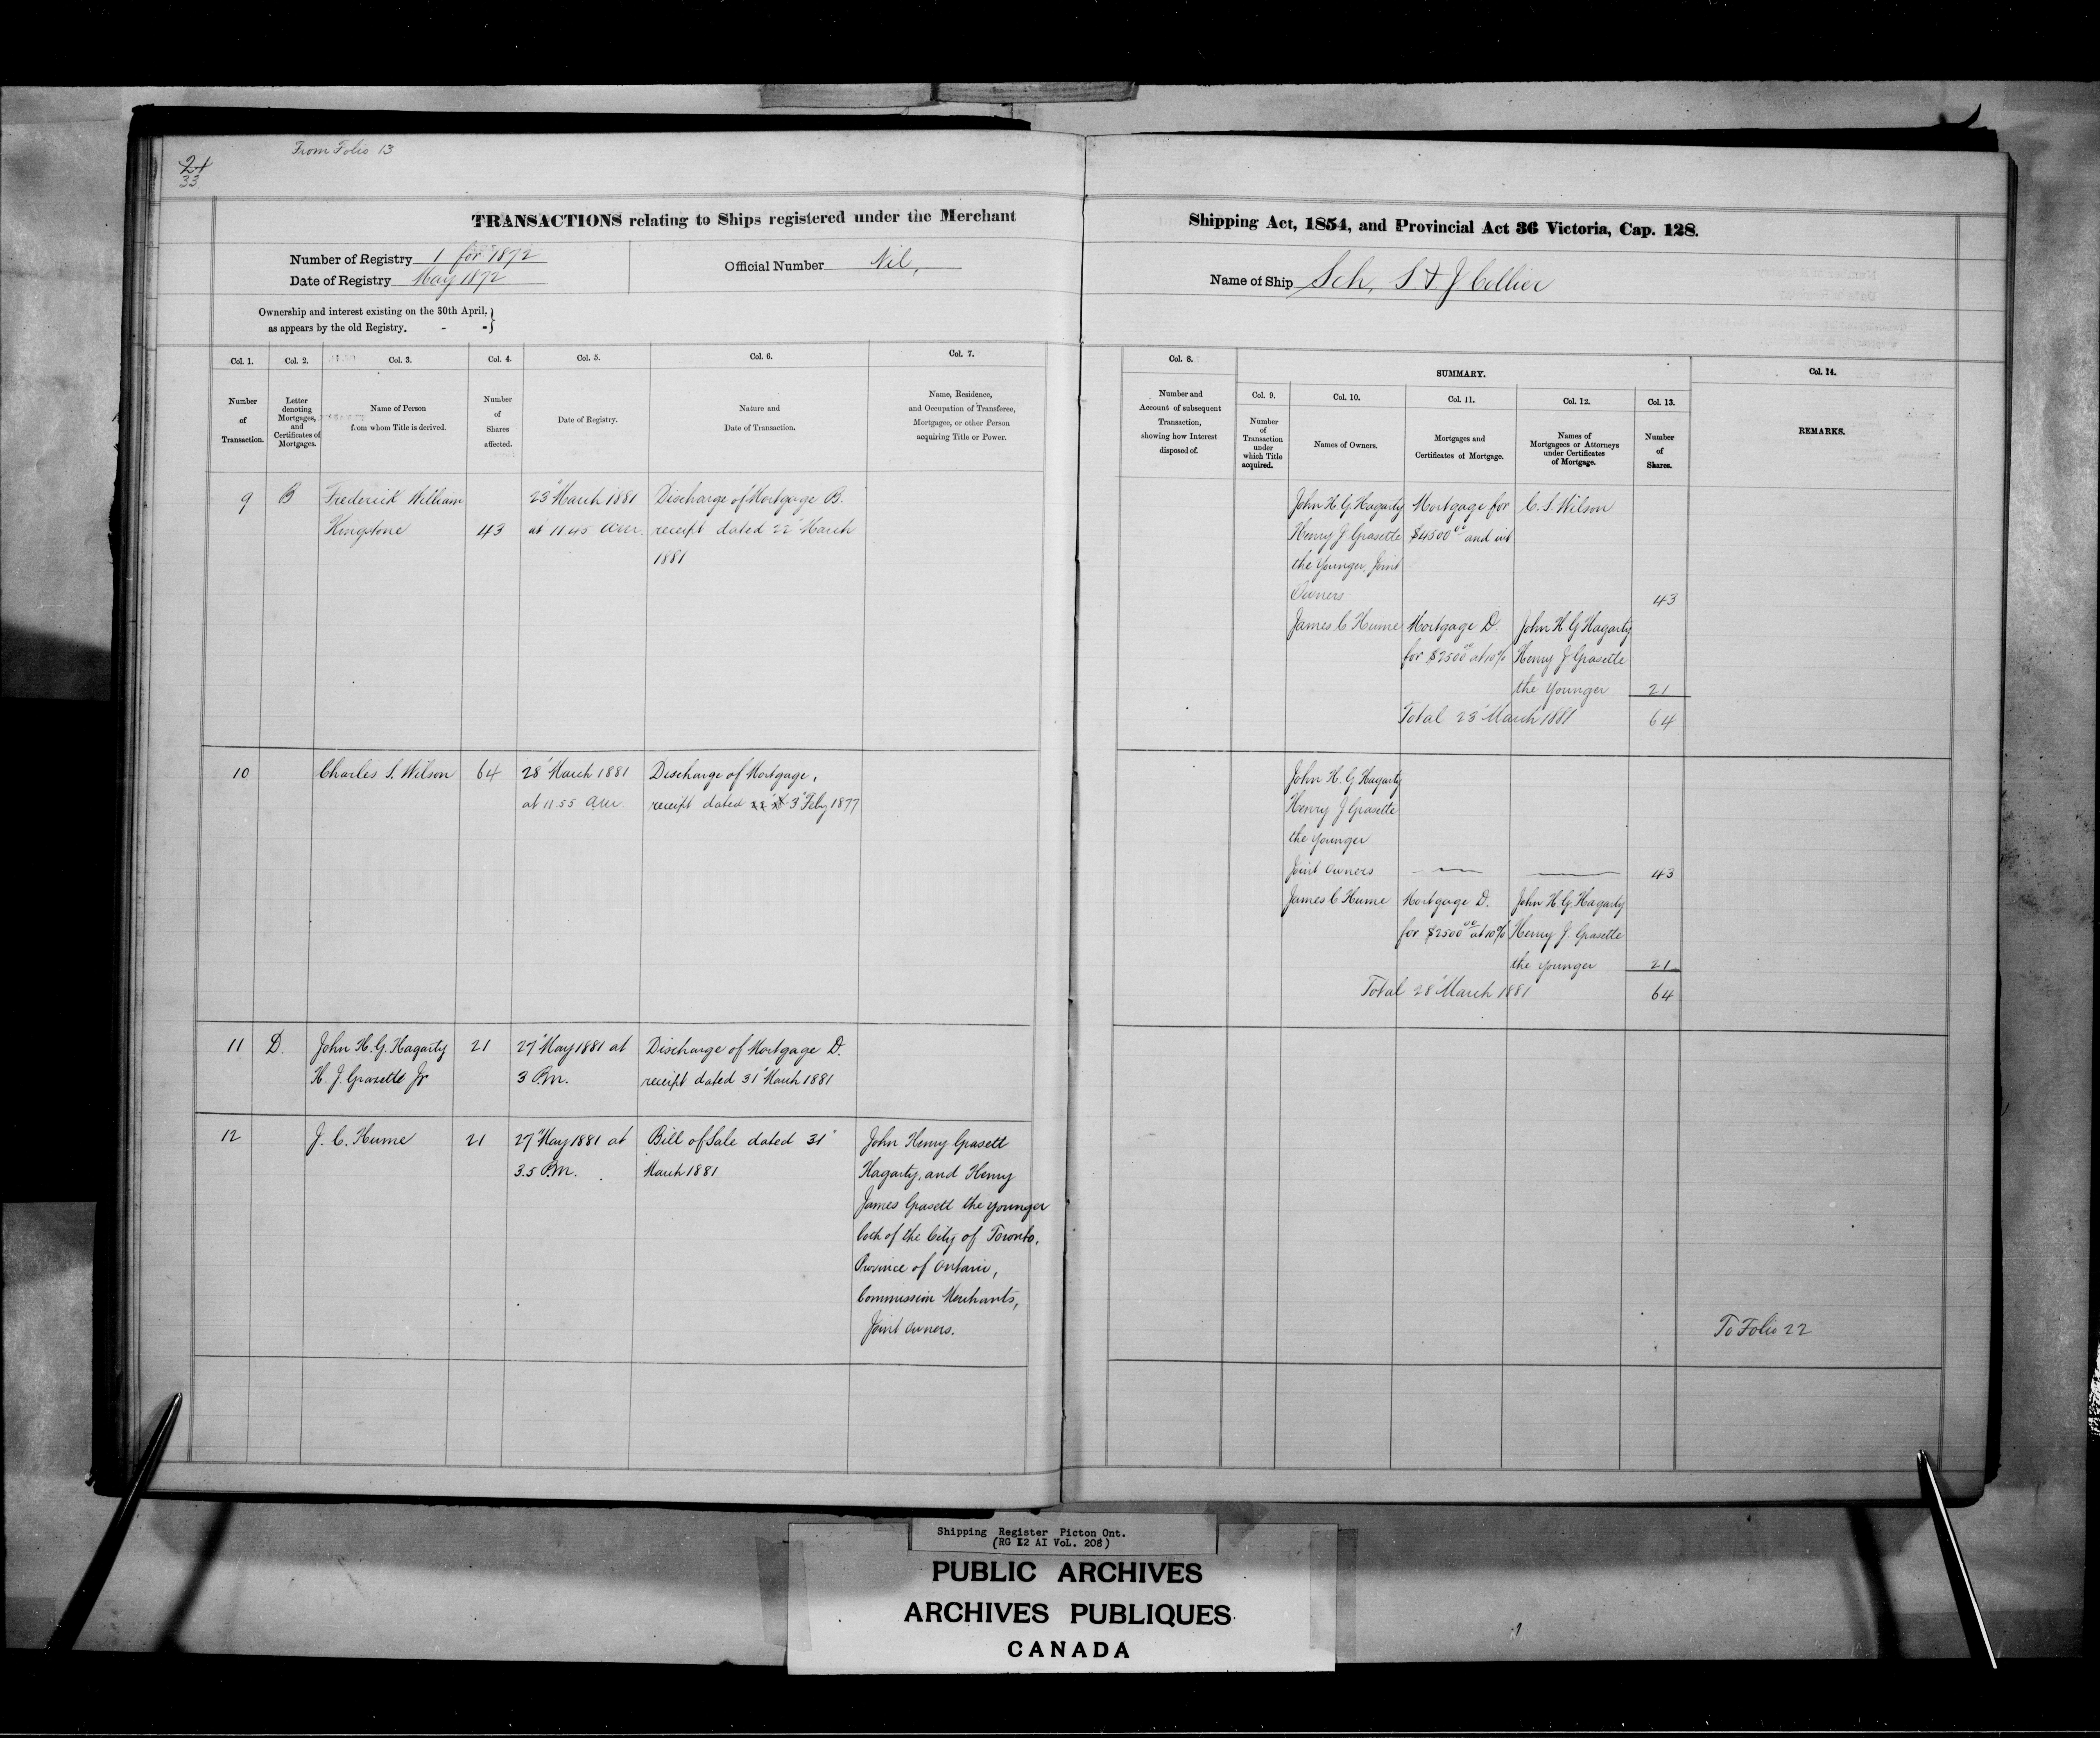 From Folio 13
24
33
TRANSACTIONS relating to Ships registered under the Merchant Shipping Act, 1854, and Provincial Act 36 Victoria, Cap. 128.
Number of Registry 1 for 1872
Date of Registry May 1872
Official Number Nil,
Name of Ship Sch, S. & J Collier
Ownership and interest existing on the 30th April,
as appears by the old Registry. - -
Col. 1.
Number
of
Transaction.
Col. 2.
Letter
denoting
Mortgages,
and
Certificates of
Mortgages.
Col. 3.
Name of Person
from whom Title is derived.
Col. 4.
Number
of
Shares
affected.
Col. 5.
Date of Registry.
Col. 6.
Nature and
Date of Transaction.
Col. 7.
Name, Residence,
and Occupation of Transferee,
Mortgagee, or other Person
acquiring Title or Power.
Col. 8.
Number and
Account of subsequent
Transaction,
showing how Interest
disposed of.
SUMMARY.
Col. 9.
Number
of
Transaction
under
which Title
acquired.
Col. 10.
Names of Owners.
Col. 11.
Mortgages and
Certificates of Mortgage.
Col. 12.
Names of
Mortgagees or Attorneys
under Certificates
of Mortgage.
Col. 13.
Number
of
Shares.
Col. 14.
REMARKS.
9
B
Frederick William
Kingstone
43
23" March 1881
at 11.45 am.
Discharge of Mortgage B.
receipt dated 22" March
1881
John H. G. Hagarty
Henry J Grasette
the younger, Joint
Owners
Mortgage for
$4500 00 and int
C. S. Wilson
43
James C Hume
Mortgage D.
for $2500 00 at 10%
John H G Hagarty
Henry J Grasette
the younger
21
Total 23" March 1881
64
10
Charles S. Wilson
64
28" March 1881
at 11.55 am.
Discharge of Mortgage,
receipt dated 3" Feby 1877
John H. G Hagarty
Henry J Grasette
the younger
Joint owners
43
James C Hume
Mortgage D.
for $2500 00 at 10%
John H. G. Hagarty
Henry J. Grasette
the younger
21
Total 28" March 1881
64
11
D.
John H. G. Hagarty
H. J. Grasette Jr
21
27" May 1881 at
3 P.m.
Discharge of Mortgage D.
receipt dated 31" March 1881
12
J. C. Hume
21
27" May 1881 at
3.5 P.M.
Bill of Sale dated 31"
March 1881
John Henry Grasett
Hagarty, and Henry
James Grasett the younger
both of the City of Toronto,
Province of Ontario,
Commission Merchants,
Joint owners.
To Folio 22
Shipping Register Picton Ont.
(RG 12 AI VoL. 208)
PUBLIC ARCHIVES
ARCHIVES PUBLIQUES
CANADA